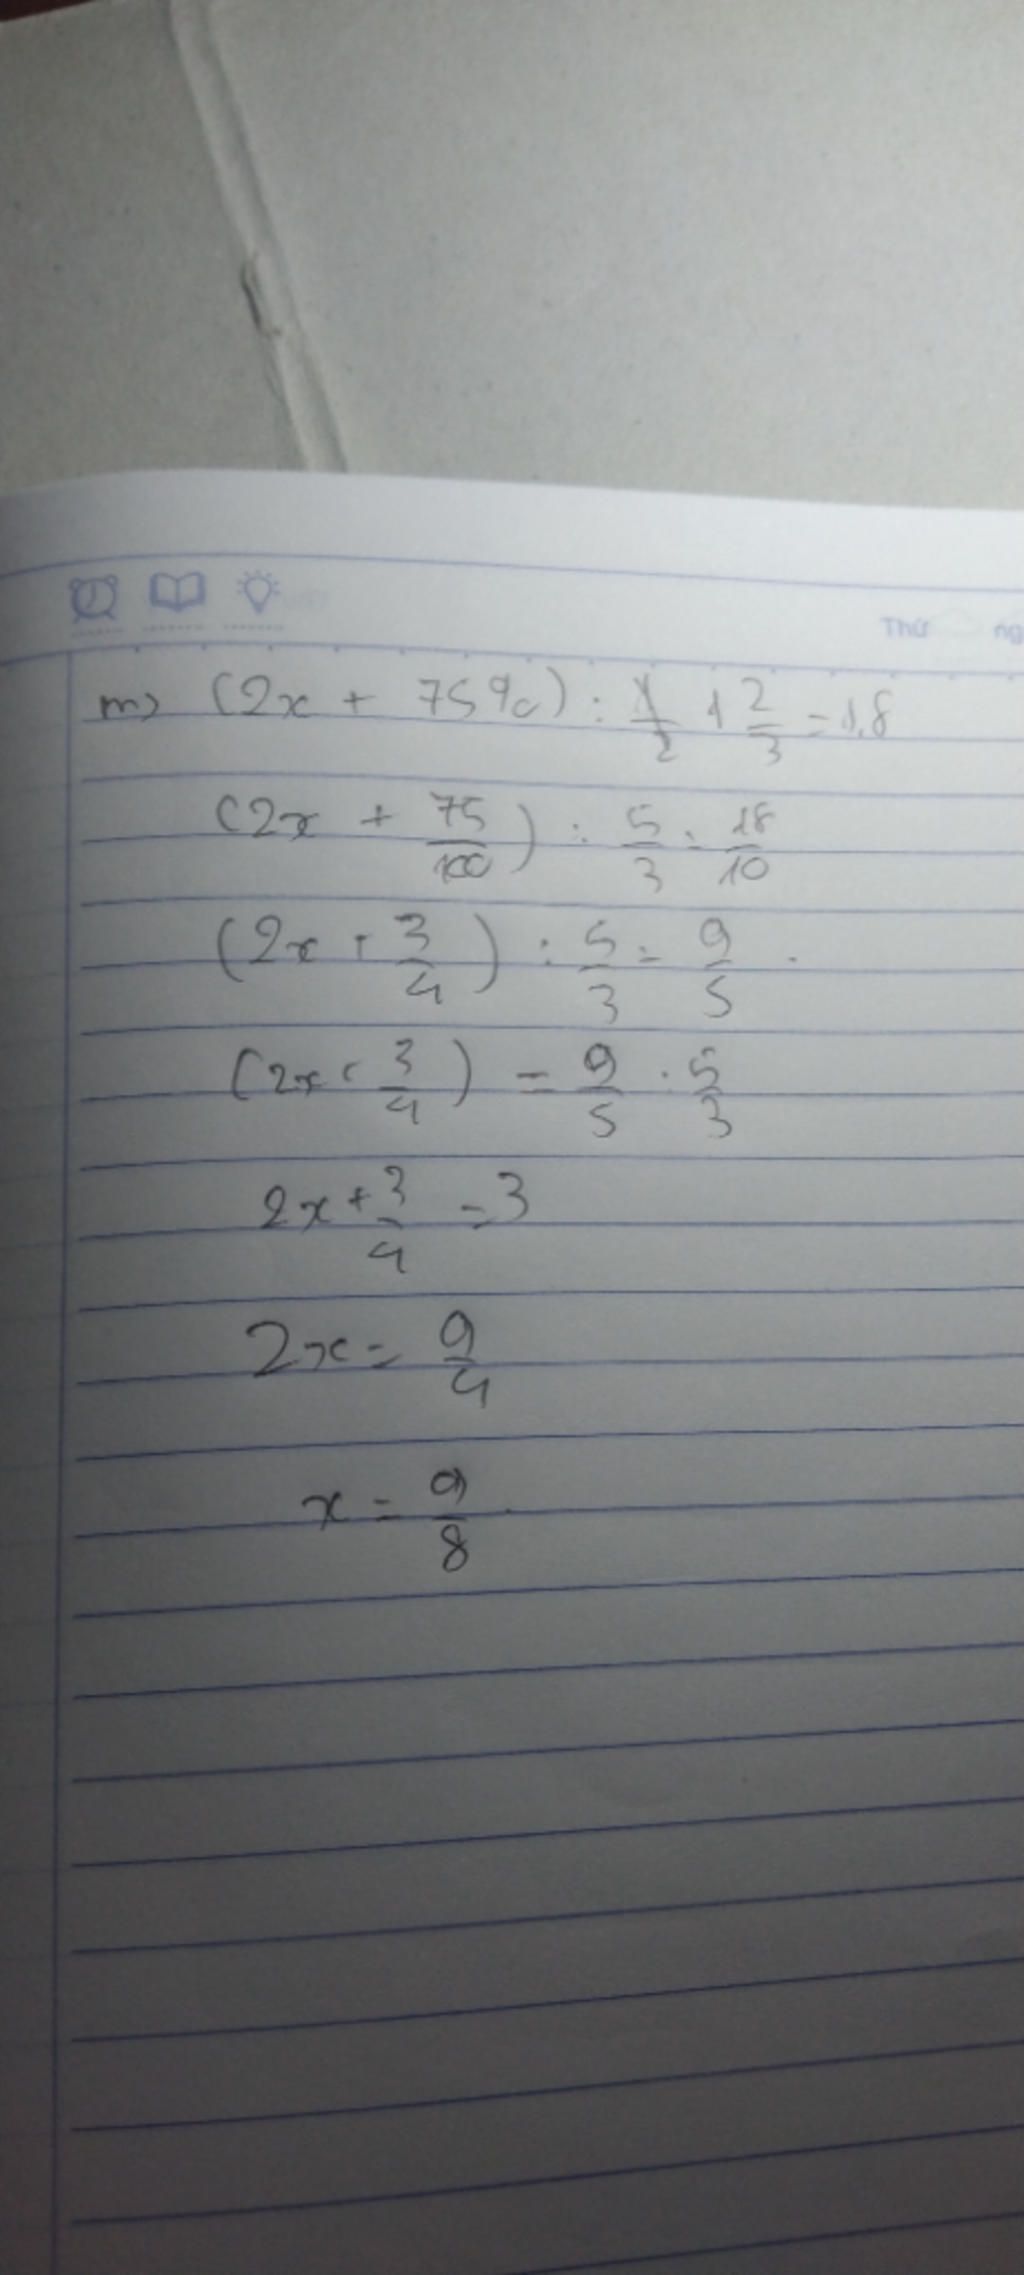 Thứ ng
m) (2x + 75%) : 1 2/3 = 1,8
(2x + 75/100) : 5/3 = 18/10
(2x + 3/4) : 5/3 = 9/5
(2x + 3/4) = 9/5 . 5/3
2x + 3/4 = 3
2x = 9/4
x = 9/8